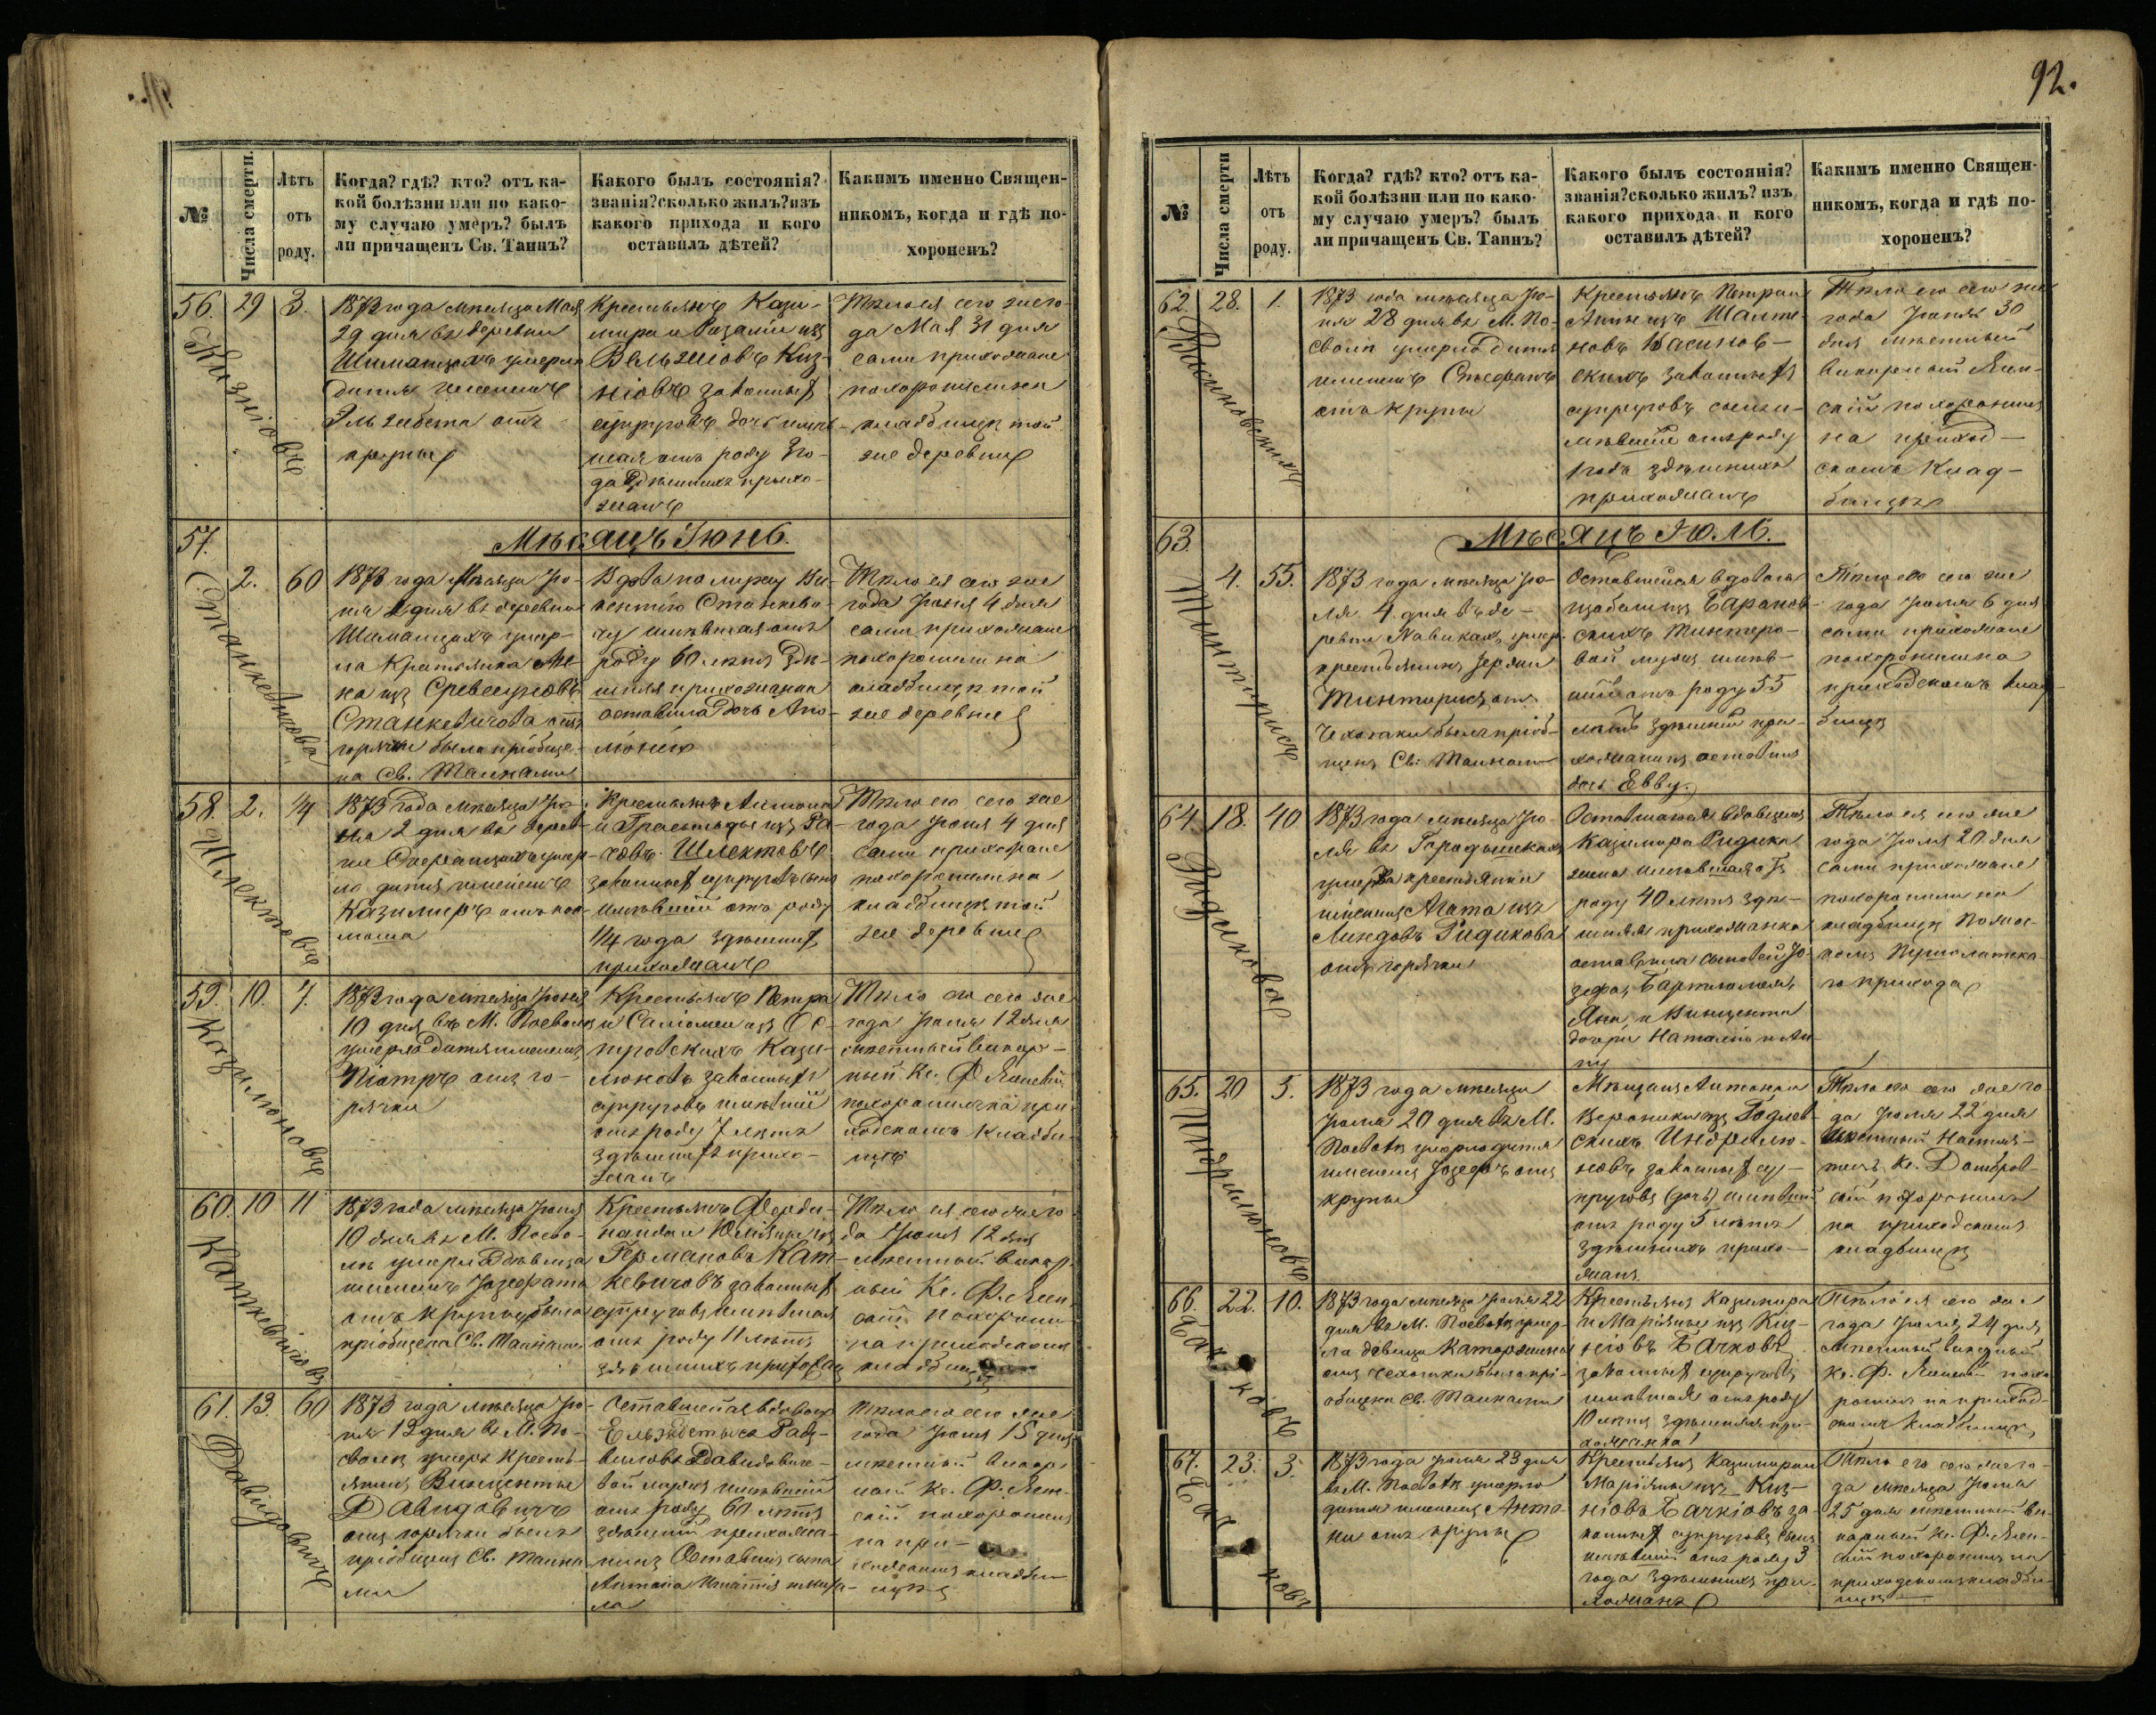 №
Числа смерти.
Лѣтъ
отъ
роду.
Когда? гдѣ? кто? отъ ка-
кой болѣзни или по како-
му случаю умеръ? былъ
ли причащенъ Св. Таинъ?
Какого былъ состоянія?
званія? сколько жилъ? изъ
какого прихода и кого
оставилъ дѣтей?
Какимъ именно Священ-
никомъ, когда и гдѣ по-
хороненъ?
56.
29
3.
Кизніовъ
1873 года мѣсяца Мая
29 дня въ деревни
Шиманцахъ умерла
дитя именемъ
Эльзбета отъ
крупы
Крестьянъ Кази-
мира и Розаліи изъ
Вельжіовъ Киз-
ніовъ законныхъ
супруговъ дочь имѣв-
шая отъ роду 3 го-
да здѣшнихъ прихо-
жанъ
Тѣло ея сего же го-
да Мая 31 дня
сами прихожане
похоронили на
кладбищѣ той
же деревни
57.
Станкевичова
Мѣсяцъ Іюнь.
2.
60
1873 года Мѣсяца Ію-
ня 2 дня въ деревни
Шиманцахъ умер-
ла Крестьянка Ан-
на изъ
Станкевичова отъ
горячки была пріобще-
на Св. Тайнами
Вдова по мужу Ви-
кентію Станкеви-
чу имѣвшая отъ
роду 60 лѣтъ здѣ-
шняя прихожанка
оставила дочь Апо-
лонію
Тѣло ея сего же
года Іюня 4 дня
сами прихожане
похоронили на
кладбищѣ той
же деревни
58.
2.
1/4
Шлектовъ
1873 года мѣсяца Ію-
ня 2 дня въ дерев-
ни умер-
ло дитя именемъ
Казимиръ отъ
Крестьянъ Антона
и изъ Ра-
Шлектовъ
законныхъ супруговъ сынъ
имѣвшій отъ роду
1/4 года здѣшнихъ
прихожанъ
Тѣло его сего же
года Іюня 4 дня
сами прихожане
похоронили на
кладбищѣ той
же деревни
59.
10.
7.
Казилюновъ
1873 года мѣсяца Іюня
10 дня въ М. Посволѣ
умерло дитя именемъ
Піотръ отъ го-
рячки
Крестьянъ Петра
и Саломеи изъ Ос-
тровскихъ Кази-
люновъ законныхъ
супруговъ имѣвшій
отъ роду 7 лѣтъ
здѣшнихъ прихо-
жанъ
Тѣло его сего же
года Іюня 12 дня
мѣстный викар-
ный Кс. Ф. Ясенскій
похоронилъ на при-
ходскомъ кладби-
щѣ
60.
10
11
Каткевичовъ
1873 года мѣсяца Іюня
10 дня въ М. Посво-
лѣ умерла дѣвица
именемъ Іозефата
отъ крупы была
пріобщена Св. Тайнами
Крестьянъ Ферди-
нанда и Юліяны изъ
Германовъ Кат-
кевичовъ законныхъ
супруговъ имѣвшая
отъ роду 11 лѣтъ
здѣшнихъ прихожанъ
Тѣло ея сего же го-
да Іюня 12 дня
мѣстный викар-
ный Кс. Ф. Ясен-
скій похорони-
на приходскомъ
кладбищѣ
61.
13.
60
Давидовичъ
1873 года мѣсяца Ію-
ня 13 дня въ М. По-
сволѣ умеръ Кресть-
янинъ Винцентій
Давидовичъ
отъ горячки былъ
пріобщенъ Св. Тайна-
ми
Оставшейся вдовою
Ельзбеты съ Рад-
виловъ Давидовиче-
вой мужъ имѣвшій
отъ роду 60 лѣтъ
здѣшній прихожа-
нинъ Оставилъ сына
Антона
Тѣло его сего же
года Іюня 15 дня
мѣстный викар-
ный Кс. Ф. Ясен-
скій похоронилъ
на при-
ходскомъ кладби-
щѣ
92.
№
Числа смерти
Лѣтъ
отъ
роду.
Когда? гдѣ? кто? отъ ка-
кой болѣзни или по како-
му случаю умеръ? былъ
ли причащенъ Св. Таинъ?
Какого былъ состоянія?
званія? сколько жилъ? изъ
какого прихода и кого
оставилъ дѣтей?
Какимъ именно Священ-
никомъ, когда и гдѣ по-
хороненъ?
62.
28.
1.
Васиновскихъ
1873 года мѣсяца Ію-
ня 28 дня въ М. По-
сволѣ умерло дитя
именемъ Стефанъ
отъ крупы
Крестьянъ Петра и
Анны изъ Шалте-
новъ Васинов-
скихъ законныхъ
супруговъ сынъ и-
мѣвшій отъ роду
1 годъ здѣшнихъ
прихожанъ
Тѣло его сего же
года Іюня 30
дня мѣстный
викарный Ясен-
скій похоронилъ
на приход-
скомъ клад-
бищѣ
63.
Тинтерисъ
Мѣсяцъ Іюль.
4.
55.
1873 года мѣсяца Ію-
ля 4 дня въ де-
ревни Навикахъ умеръ
крестьянинъ
Тинтерисъ отъ
чехотки былъ пріоб-
щенъ Св: Тайнами
Оставшейся вдовою
Изабели изъ Баранов-
скихъ Тинтеро-
вой мужъ имѣв-
шій отъ роду 55
лѣтъ здѣшній при-
хожанинъ оставилъ
дочь Евву.
Тѣло его сего же
года Іюля 6 дня
сами прихожане
похоронили на
приходскомъ клад-
бищѣ
64.
18.
40
Ридикова
1873 года мѣсяца Ію-
ля въ Городишкахъ
умерла крестьянка
именемъ Агата изъ
Линдовъ Ридикова
отъ горячки
Оставшагося вдовцемъ
Казимира Ридика
жена имѣвшая отъ
роду 40 лѣтъ здѣ-
шняя прихожанка
оставила сыновей Іо-
зефа, Бартломея,
Яна, и Винцента
дочери Наталію и Ан-
ну
Тѣло ея сего же
года Іюля 20 дня
сами прихожане
похоронили на
кладбищѣ
го прихода
65.
20
5.
Индрилюновъ
1873 года мѣсяца
Іюля 20 дня въ М.
Посволѣ умерло дитя
именемъ Іозефъ отъ
крупы
Мѣщанъ Антона и
Вероники изъ Годлев-
скихъ Индрилю-
новъ законныхъ су-
пруговъ (дочь) имѣвшій
отъ роду 5 лѣтъ
здѣшнихъ прихо-
жанъ
Тѣло его сего же го-
да Іюля 22 дня
мѣстный Настоя-
тель Кс. Домбров-
скій похоронилъ
на приходскомъ
кладбищѣ
66.
22.
10.
Бачковъ
1873 года мѣсяца Іюля 22
дня въ М. Посволѣ умер-
ла дѣвица Катаржина
отъ чехотки была прі-
общена Св. Тайнами
Крестьянъ Казимира
и Маріянны изъ Киз-
ніовъ Бачковъ
законныхъ супруговъ
имѣвшая отъ роду
10 лѣтъ здѣшняя при-
хожанка
Тѣло ея сего же
года Іюля 24 дня
мѣстный викарный
Кс. Ф. Ясенскій похо-
ронилъ на приход-
скомъ кладбищѣ
67.
23.
3.
Бачковъ
1873 года Іюля 23 дня
въ М. Посволѣ умерло
дитя именемъ Анто-
ни отъ крупы
Крестьянъ Казимира и
Маріянны изъ Киз-
ніовъ Бачкіовъ за-
конныхъ супруговъ сынъ
имѣвшій отъ роду 3
года здѣшнихъ при-
хожанъ
Тѣло его сего же го-
да мѣсяца Іюля
25 дня мѣстный ви-
карный Кс. Ф. Ясен-
скій похоронилъ на
приходскомъ кладби-
щѣ